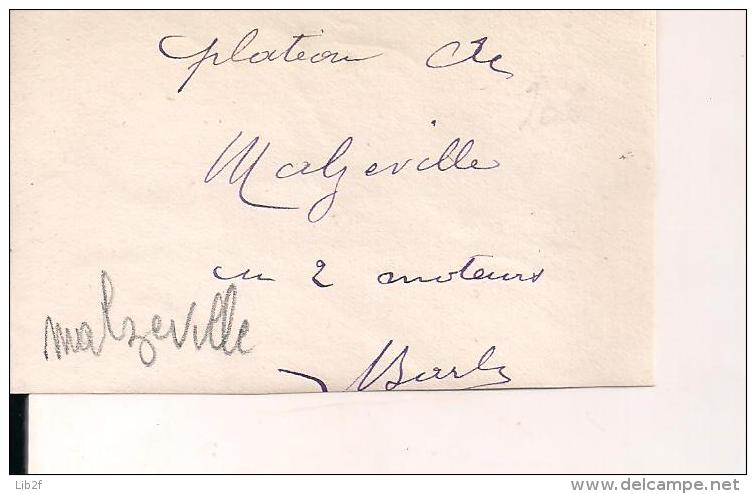 plateau de
Malzeville
un 2 moteurs
malzeville
Lib2f
www.delcampe.net